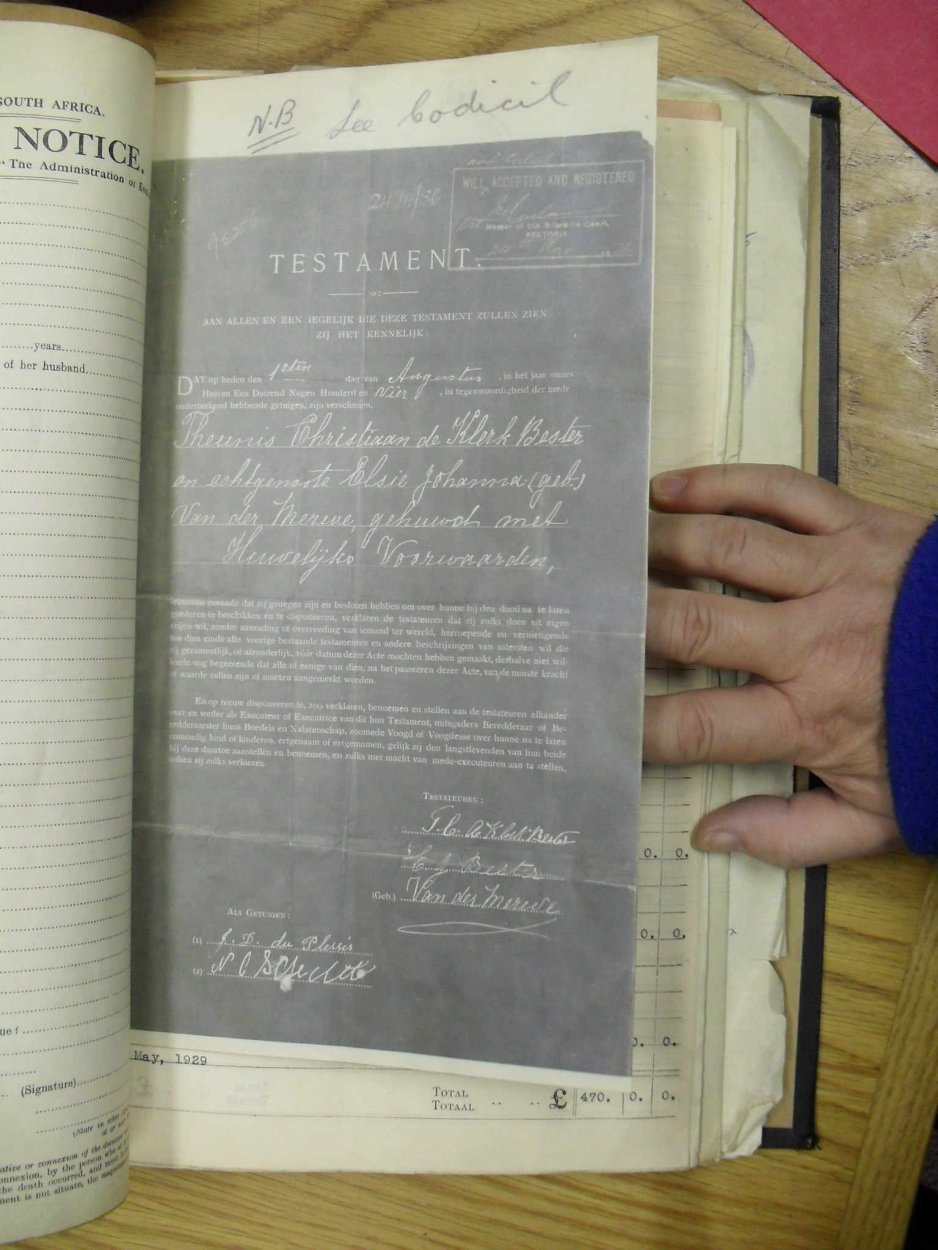 SOUTH AFRICA.
NOTICE.
The Administration of
years
of her husband
(Signature)
ative or connexion of the
onnexion, by the person who
the death occurred, and must
ment is not situate, the
N.B See Codicil
WILL ACCEPTED AND REGISTERED
Master of the Supreme Court,
PRETORIA
TESTAMENT.
AAN ALLEN EN EEN IEGELIJK DIE DEZE TESTAMENT ZULLEN ZIEN
ZIJ HET KENNELIJK:
DAT op heden den 1sten dag van Augustus, in het jaar onzes
Heeren Een Duizend Negen Honderd en Vier, in tegenwoordigheid der mede
onderteekend hebbende getuigen, zijn verschenen,
Theunis Christiaan de Klerk Bester
en echtgenoote Elsie Johanna (geb)
Van der Merwe, gehuwd met
Huwelijks Voorwaarden,
dewelken zeiende dat zij genegen zijn en besloten hebben om over hunne bij den dood na te laten
goederen te beschikken en te disponeeren, verklaren de testateuren dat zij zulks doen uit eigen
vrijen wil, zonder aanrading of overreeding van iemand ter wereld, herroepende en vernietigende
ten dien einde alle vorige bestaande testamenten en andere beschrijvingen van uitersten wil die
zij gezamentlijk, of afzonderlijk, vóór datum dezer Acte mochten hebben gemaakt, derhalve niet wil-
lende nog begeerende dat alle of eenige van dien, na het passeeren dezer Acte, van de minste kracht
of waarde zullen zijn of moeten aangemerkt worden.
En op nieuw disponeerende, zoo verklaren, benoemen en stellen aan de testateuren elkander
over en weder als Executeur of Executrice van dit hun Testament, mitsgaders Beredderaar of Be-
redderaarster huns Boedels en Nalatenschap, zoomede Voogd of Voogdesse over hunne na te laten
onmondig kind of kinderen, erfgenaam of erfgenamen, gelijk zij den langstlevenden van hun beide
bij deze daartoe aanstellen en benoemen, en zulks met macht van mede-executeuren aan te stellen,
indien zij zulks verkiezen.
TESTATEUREN:
T. C. de Klerk Bester
E J Bester
(Geb.) Van der Merwe
ALS GETUIGEN:
(1) du Plessis
(2)
0. 0.
0. 0.
0. 0.
May, 1929
TOTAL
TOTAAL .. .. £ 470. 0. 0.